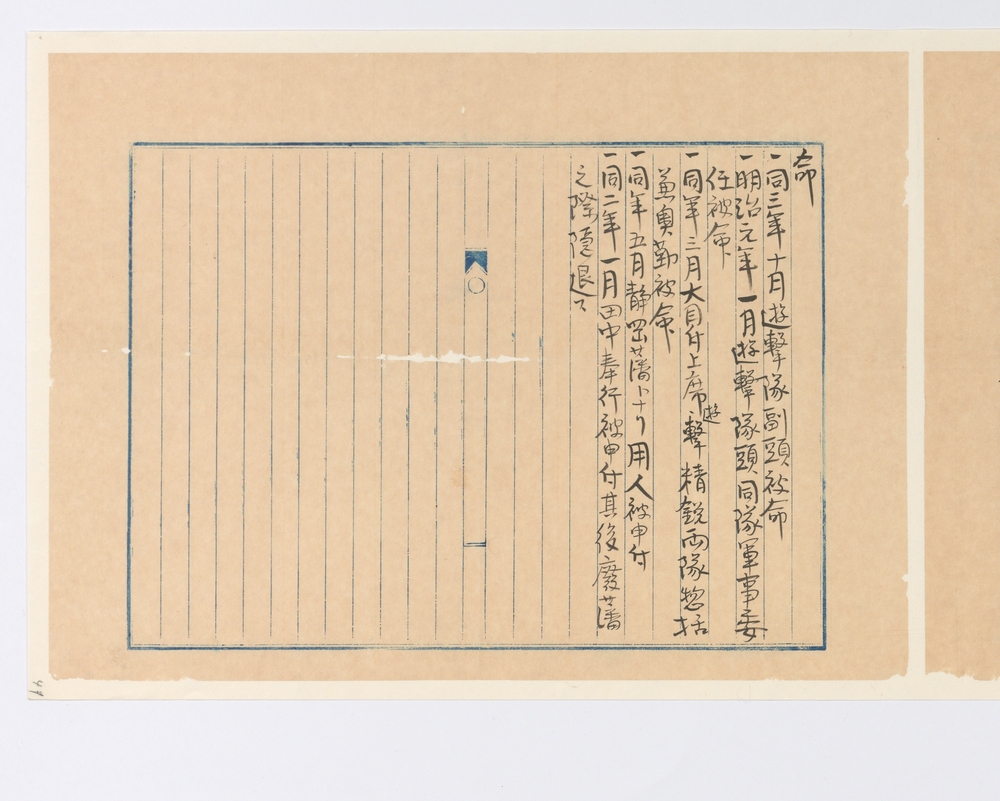 命
一同三年十月遊撃隊副頭被命
一明治元年一月遊撃隊頭同隊軍事委
任被命
一同年三月大目付上席遊撃精鋭両隊惣括
兼奥勤被命
一同年五月静岡藩トナリ用人被申付
一同二年一月田中奉行被申付其後廃藩
之際隠退ス